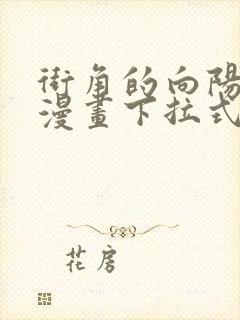 街角的向陽
漫畫下拉式
花房